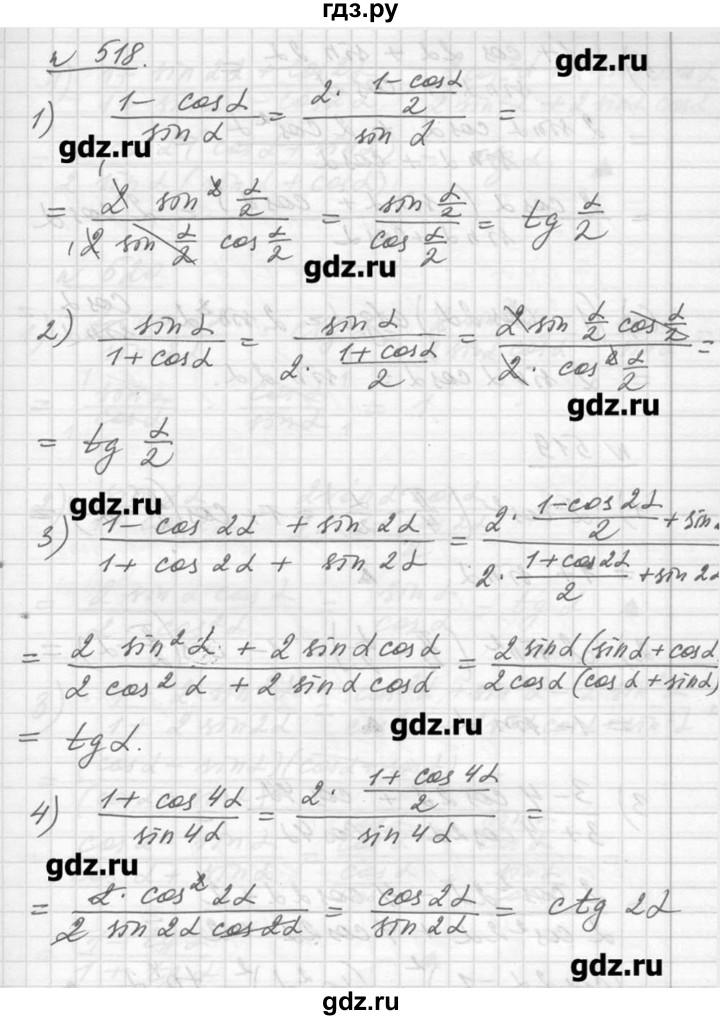 гдз.ру
№ 518.
gdz.ru
1) (1 - cos α)/(sin α) = (2 · (1 - cos α)/2)/(sin α) =
gdz.ru
= (2 sin² α/2)/(2 sin α/2 cos α/2) = (sin α/2)/(cos α/2) = tg α/2
gdz.ru
2) (sin α)/(1 + cos α) = (sin α)/(2 · (1 + cos α)/2) = (2 sin α/2 cos α/2)/(2 · cos² α/2) =
gdz.ru
= tg α/2
gdz.ru
3) (1 - cos 2α + sin 2α)/(1 + cos 2α + sin 2α) = (2 · (1 - cos 2α)/2 + sin)/(2 · (1 + cos 2α)/2 + sin 2α)
= (2 sin² α + 2 sin α cos α)/(2 cos² α + 2 sin α cos α) = (2 sin α (sin α + cos α)/(2 cos α (cos α + sin α))
gdz.ru
= tg α.
4) (1 + cos 4α)/(sin 4α) = (2 · (1 + cos 4α)/2)/(sin 4α) =
gdz.ru
= (2 · cos² 2α)/(2 sin 2α cos 2α) = (cos 2α)/(sin 2α) = ctg 2α
gdz.ru
gdz.ru